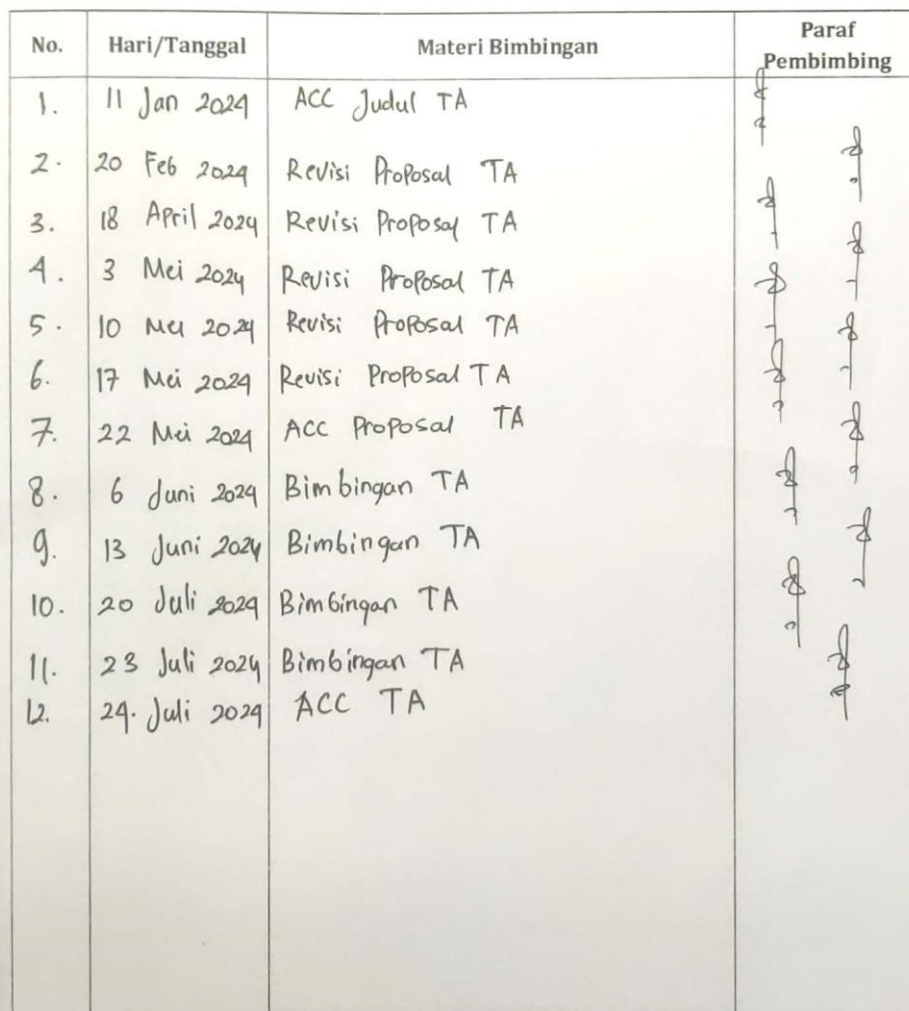 No. Hari/Tanggal Materi Bimbingan Paraf Pembimbing
1. 11 Jan 2024 ACC Judul TA
2. 20 Feb 2024 Revisi Proposal TA
3. 18 April 2024 Revisi Proposal TA
4. 3 Mei 2024 Revisi Proposal TA
5. 10 Mei 2024 Revisi Proposal TA
6. 17 Mei 2024 Revisi Proposal TA
7. 22 Mei 2024 ACC Proposal TA
8. 6 Juni 2024 Bimbingan TA
9. 13 Juni 2024 Bimbingan TA
10. 20 Juli 2024 Bimbingan TA
11. 23 Juli 2024 Bimbingan TA
12. 24. Juli 2024 ACC TA